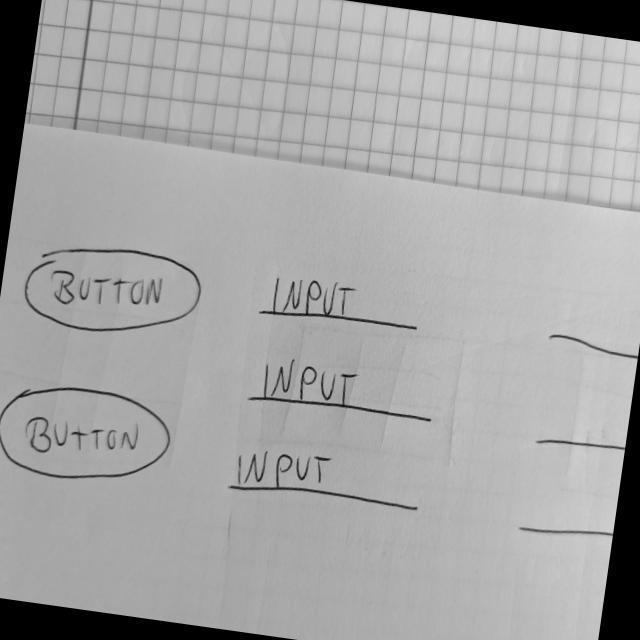 BUTTON INPUT
INPUT
BUTTON INPUT